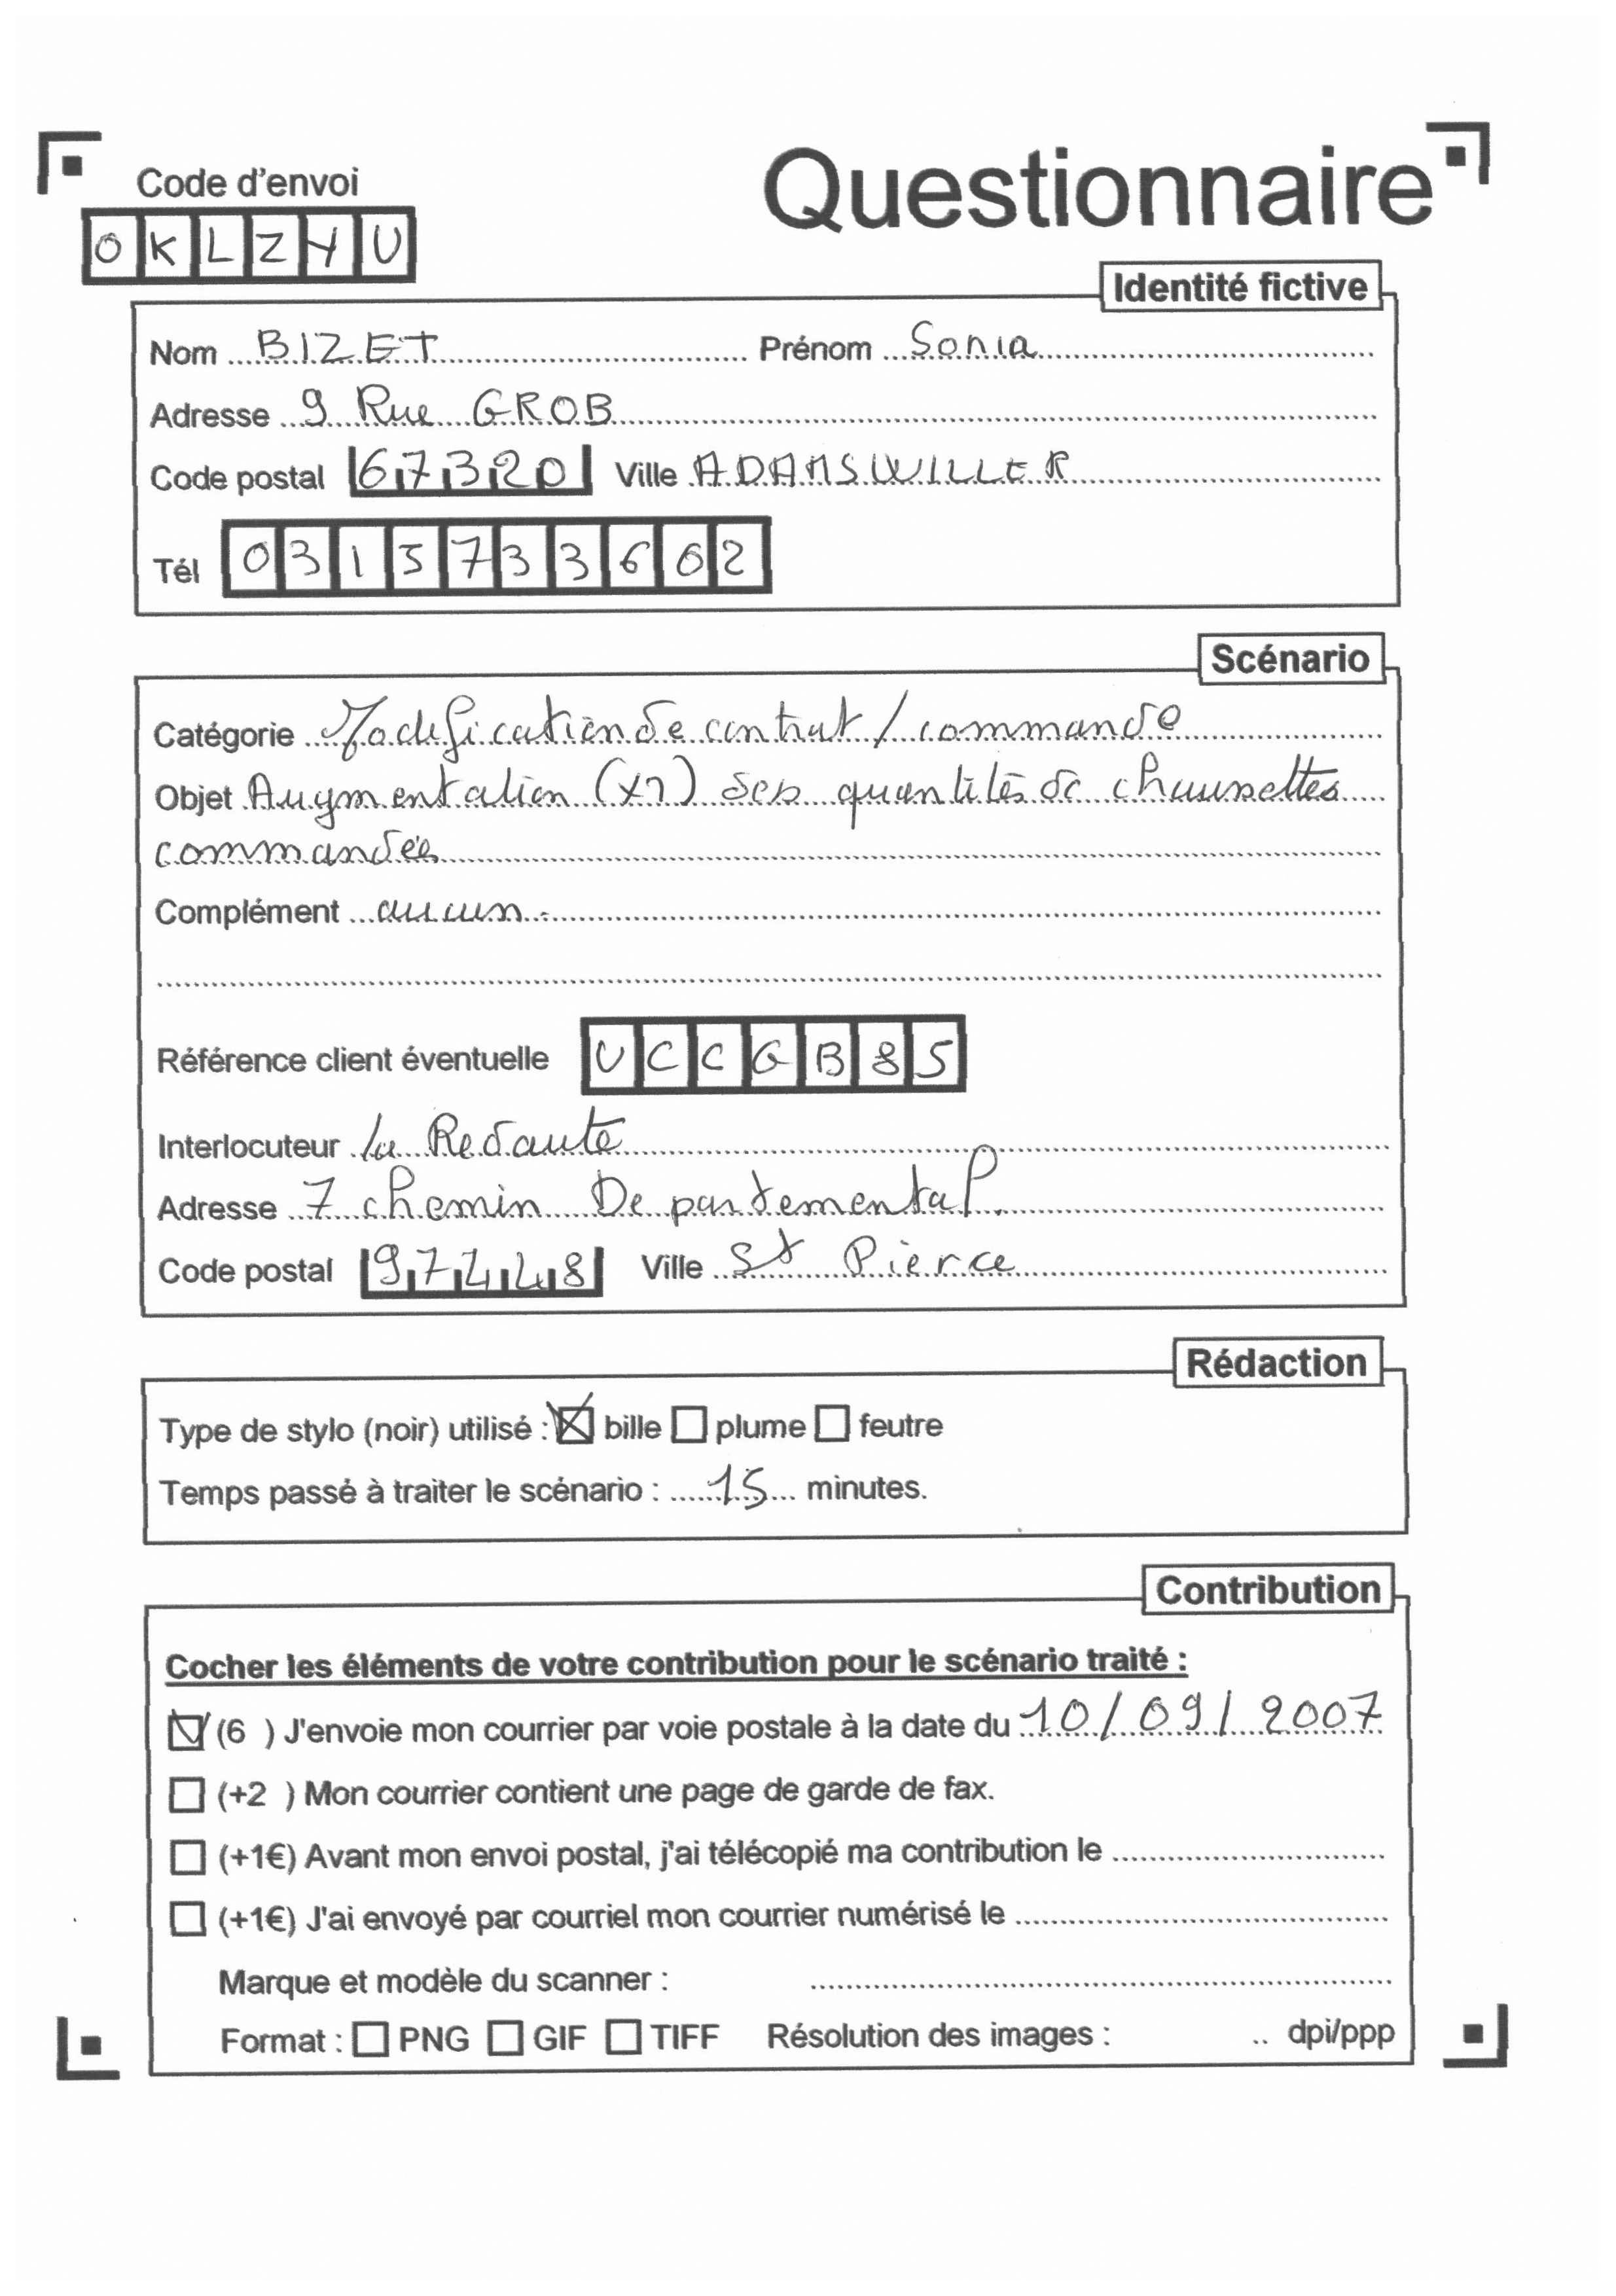 Code d'envoi
Questionnaire
OKLZHU
Identité fictive
Nom BIZET Prénom Sonia
Adresse 9 Rue GROB
Code postal 67320 Ville ADAMSWILLER
Tél 0315733602
Scénario
Catégorie Modification de contrat / commande
Objet Augmentation (x7) des quantités de chaussettes
commandées
Complément aucun.
Référence client éventuelle UCCGB85
Interlocuteur La Redoute
Adresse 7 chemin Departemental.
Code postal 97448 Ville St Pierre
Rédaction
Type de stylo (noir) utilisé : ☒ bille ☐ plume ☐ feutre
Temps passé à traiter le scénario : 15 minutes.
Contribution
Cocher les éléments de votre contribution pour le scénario traité :
☑ (6 ) J'envoie mon courrier par voie postale à la date du 10/09/2007
☐ (+2 ) Mon courrier contient une page de garde de fax.
☐ (+1€) Avant mon envoi postal, j'ai télécopié ma contribution le
☐ (+1€) J'ai envoyé par courriel mon courrier numérisé le
Marque et modèle du scanner :
Format : ☐ PNG ☐ GIF ☐ TIFF Résolution des images : .. dpi/ppp